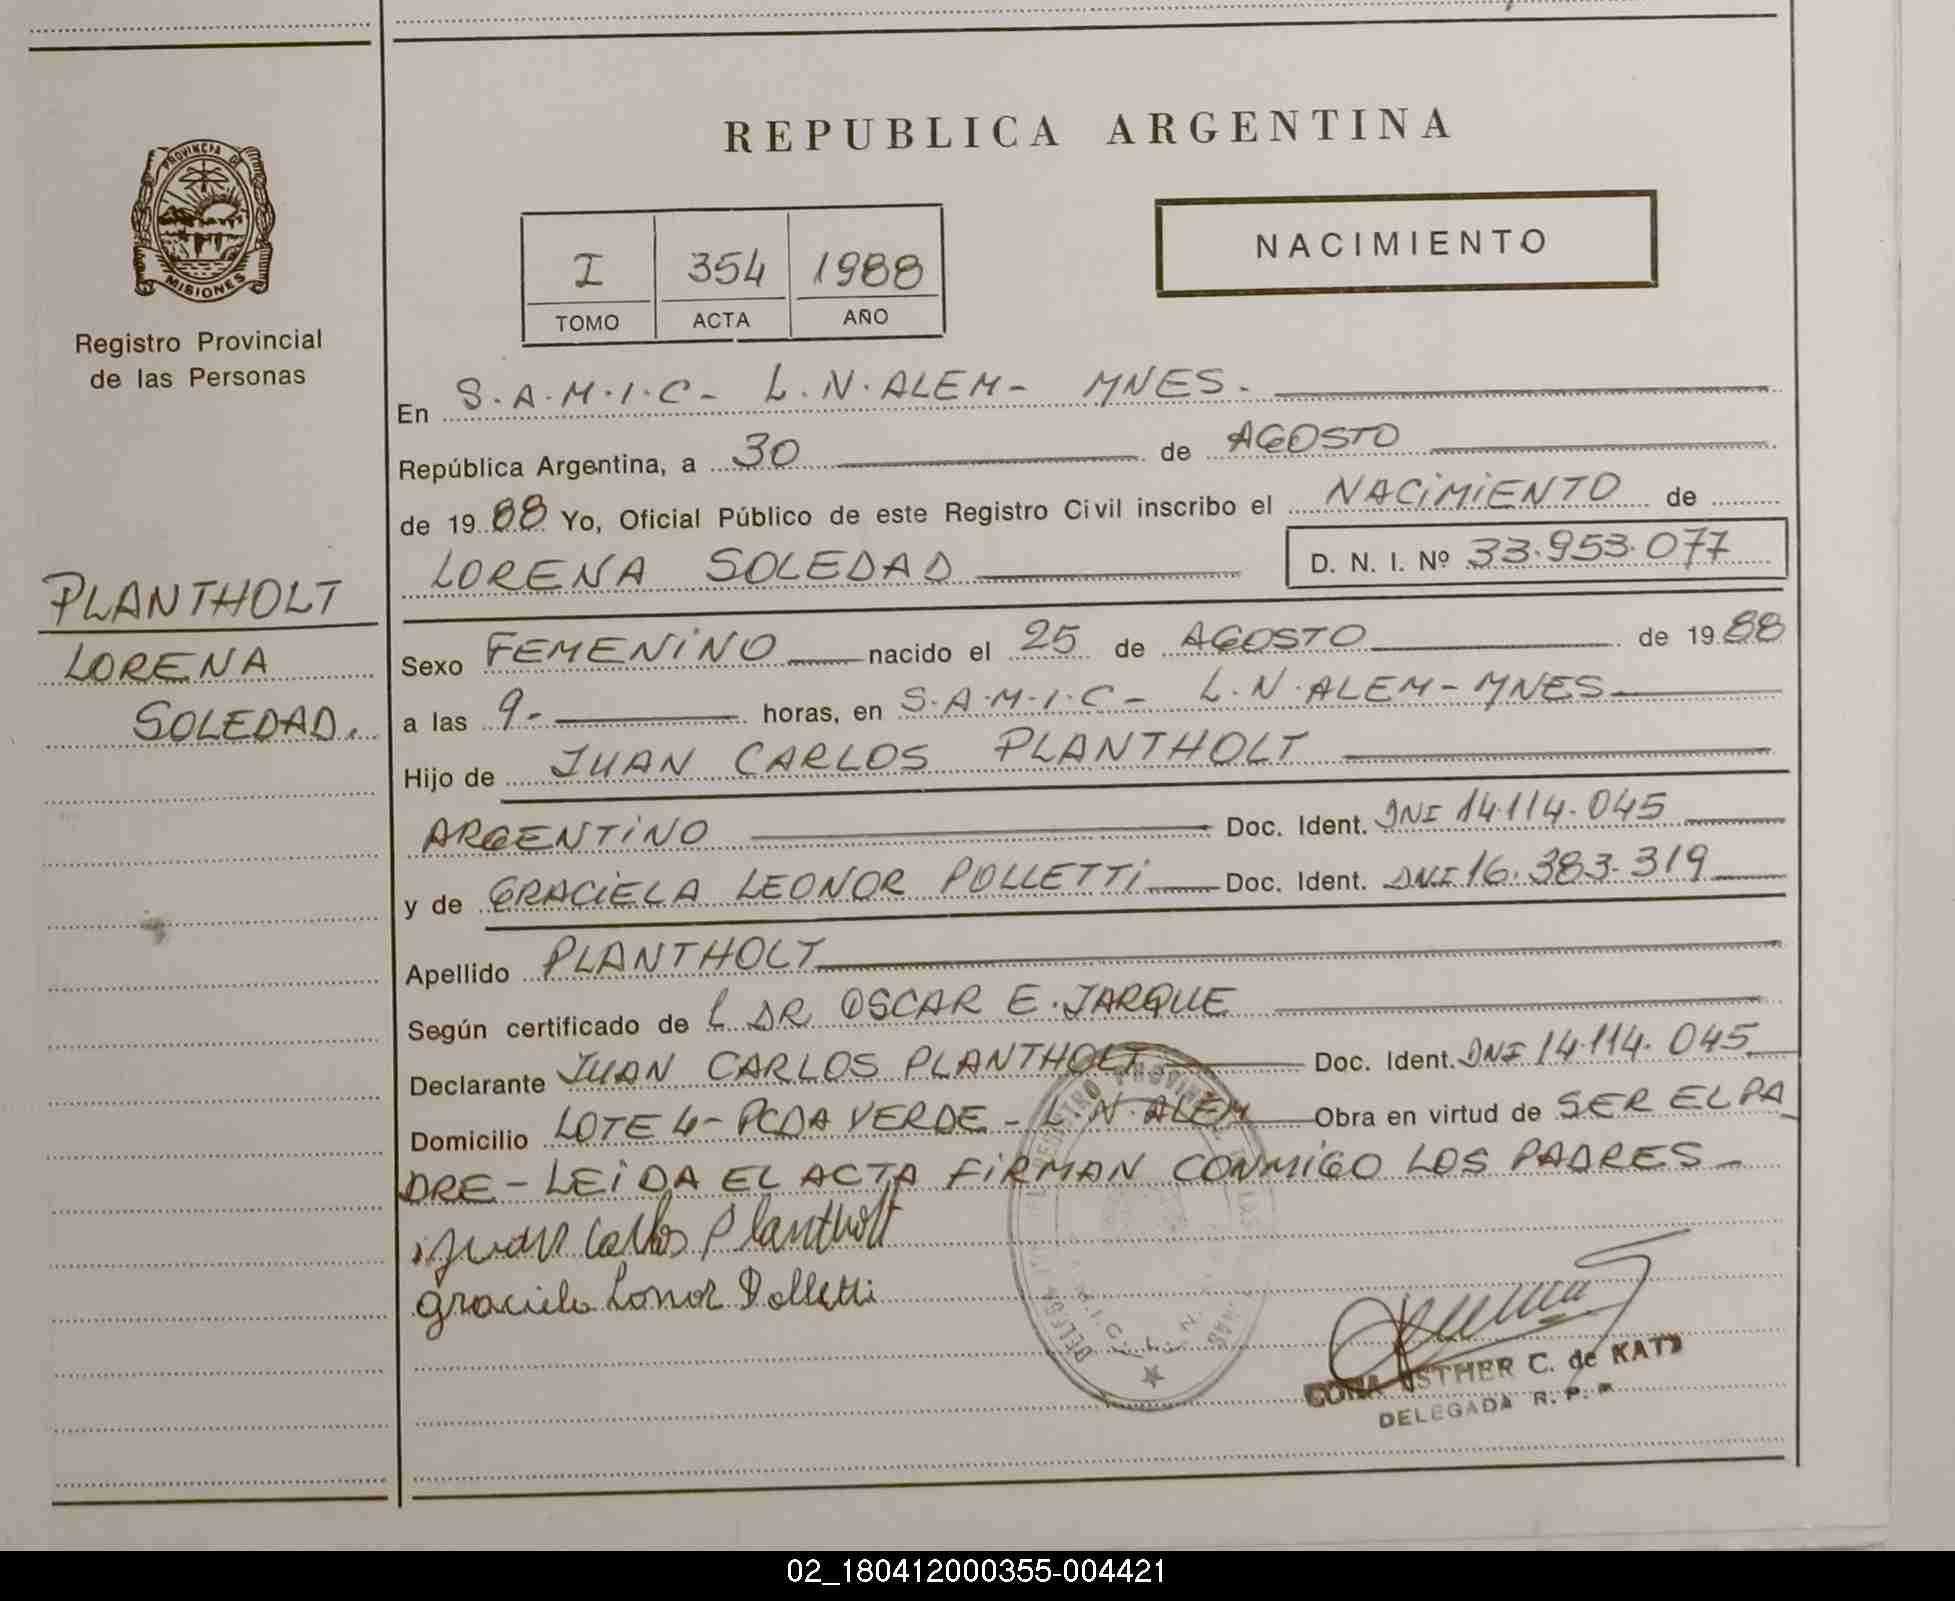 PROVINCIA DE
MISIONES
Registro Provincial
de las Personas
PLANTHOLT
LORENA
SOLEDAD.
REPUBLICA ARGENTINA
NACIMIENTO
I 354 1988
TOMO ACTA AÑO
En S.A.M.I.C- L.N.ALEM- MNES.
República Argentina, a 30 de AGOSTO
de 1988 Yo, Oficial Público de este Registro Civil inscribo el NACIMIENTO de
LORENA SOLEDAD D. N. I. Nº 33.953.077
Sexo FEMENINO nacido el 25 de AGOSTO de 1988
a las 9- horas, en S.A.M.I.C- L.N.ALEM-MNES
Hijo de JUAN CARLOS PLANTHOLT
ARGENTINO Doc. Ident. DNI 14.114.045
y de GRACIELA LEONOR POLLETTI Doc. Ident. DNI 16.383.319
Apellido PLANTHOLT
Según certificado de L DR OSCAR E. JARQUE
Declarante JUAN CARLOS PLANTHOLT Doc. Ident. DNI 14.114.045
Domicilio LOTE 4- PCDA VERDE - L.N.ALEM Obra en virtud de SER EL PA
DRE - LEIDA EL ACTA FIRMAN CONMIGO LOS PADRES -
Juan Carlos Plantholt
Graciela Lonor Polletti
ESTHER C. de KATZ
DELEGADA R. P.
02_180412000355-004421